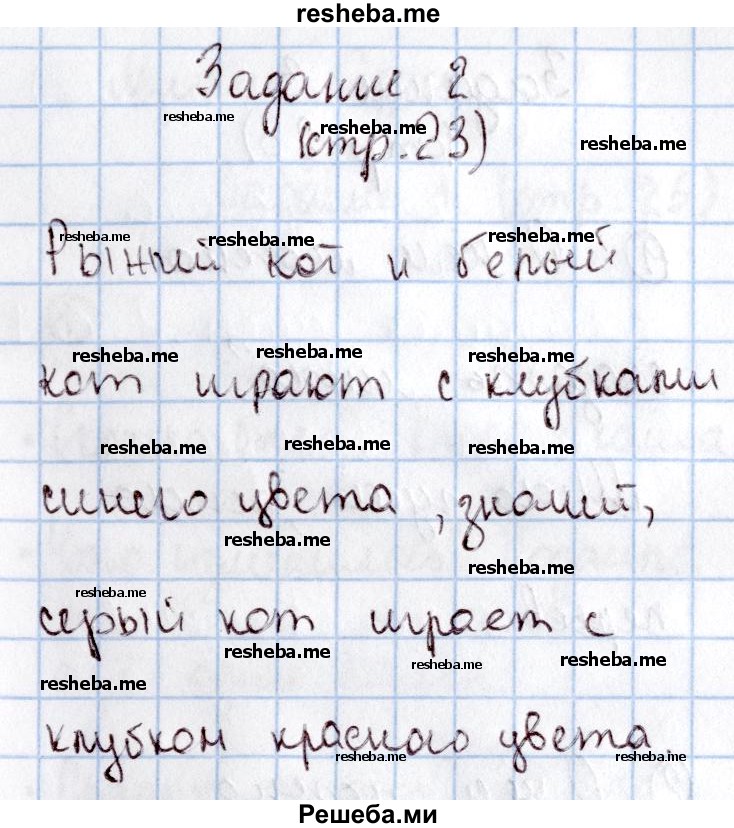 resheba.me
Задание 2
resheba.me
(стр. 23)
resheba.me resheba.me
resheba.me resheba.me resheba.me
Рыжий кот и белый
resheba.me resheba.me resheba.me
кот играют с клубками
resheba.me resheba.me resheba.me
синего цвета, значит,
resheba.me resheba.me
resheba.me
серый кот играет с
resheba.me resheba.me resheba.me
resheba.me
клубком красного цвета.
resheba.me resheba.me
Решеба.ми